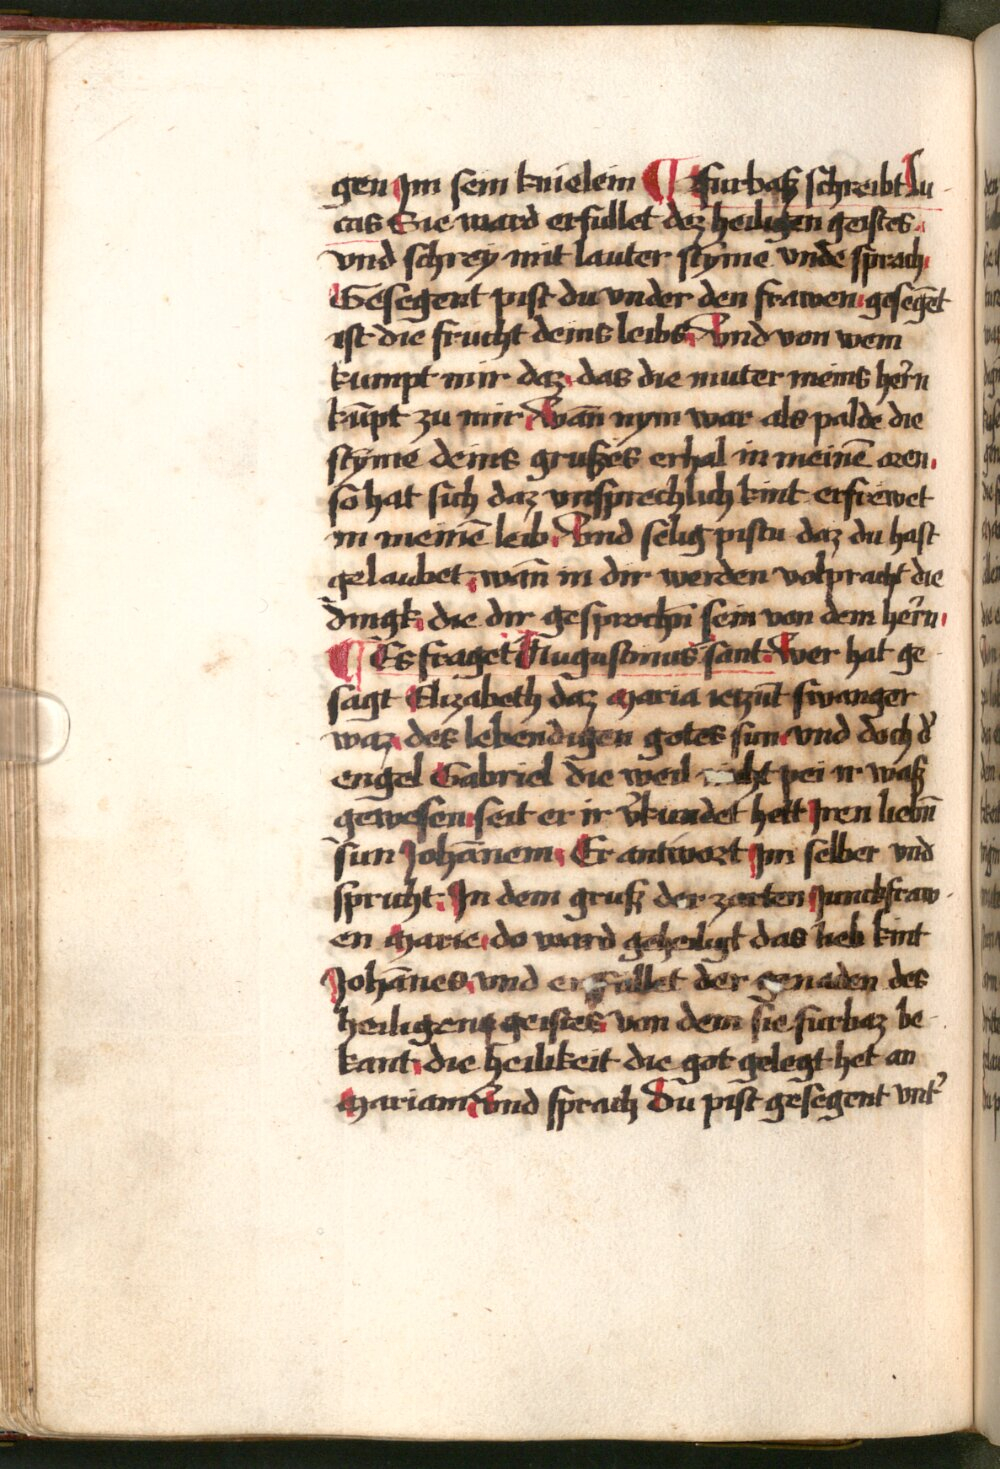 gen Jm sein knielein ¶ furbaß schreibt Lu
cas Sie ward erfullet dez heiligen geistes.
vnd schrey mit lauter stỹme vnde sprach
Gesegent pist du vnder den frawen gesegēt
ist die frucht deins leibs. Vnd von wem
kumpt mir daz das die muter meins herr̄n
kūpt zu mir Wan̄ nym war als palde die
stỹme deins grußes erhal in meinē oren.
so hat sich daz vnsprechlich kint erfrewet
in meinē leib. Vnd selig pistu daz du hast
gelaubet, wan̄ in dir werden volpracht die
dingk, die dir gesprochn̄ sein von dem herr̄n.
¶ Es fraget Augustinus sant. Wer hat ge
sagt Elizabeth daz Maria ietzūt swanger
waz des lebendigen gotes sun vnd doch d'
engel Gabriel die weil nicht pei ir waß
gewesen seit er ir v'kundet hett Jren liebn̄
sun Johānem. Er antwort Jm selber vnd
spricht. Jn dem gruß der zarten Junckfraw
en Marie do ward geheiligt das lieb kint
Johānes, vnd erfullet der genaden des
heiligenn geistes von dem sie furbaz be
kant die heilikeit die got gelegt het an
Mariam Vnd sprach Du pist gesegent vnt'